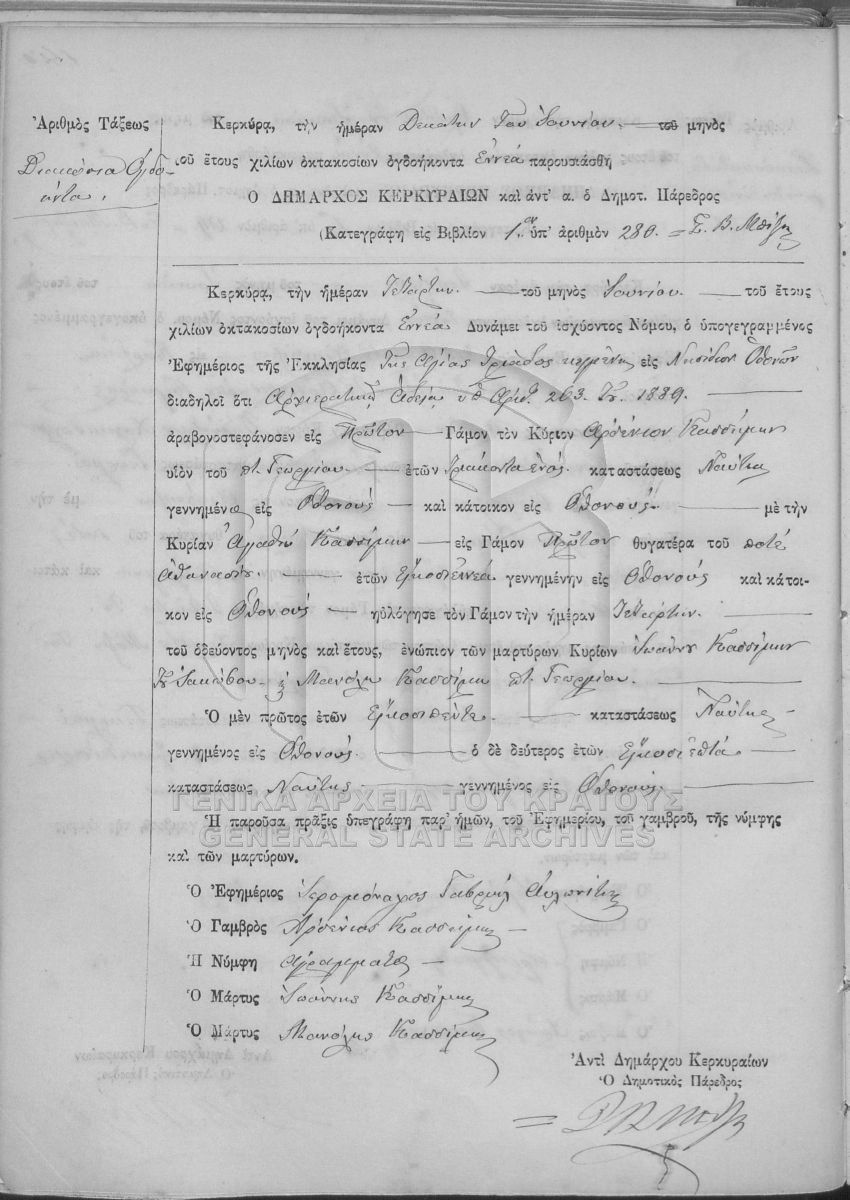 Ἀριθμὸς Τάξεως
Διακόσια Ὀγδο-
ῆντα.
Κερκύρα, τὴν ἡμέραν Δεκάτην Του Ἰουνίου. τοῦ μηνὸς
τοῦ ἔτους χιλίων ὀκτακοσίων ὀγδοήκοντα Ἐννεά παρουσιάσθη
Ὁ ΔΗΜΑΡΧΟΣ ΚΕΡΚΥΡΑΙΩΝ καὶ ἀντ' α. ὁ Δημοτ. Πάρεδρος
(Κατεγράφη εἰς Βιβλίον 1ον ὑπ' ἀριθμὸν 280.
Κερκύρᾳ, τὴν ἡμέραν Τετάρτην. τοῦ μηνὸς Ἰουνίου. τοῦ ἔτους
χιλίων ὀκτακοσίων ὀγδοήκοντα Ἐννεά Δυνάμει τοῦ ἰσχύοντος Νόμου, ὁ ὑπογεγραμμένος
Ἐφημέριος τῆς Ἐκκλησίας Της Αγίας Τριάδος κειμένης εἰς Νησίδιον Ὀθονῶν
διαδηλοῖ ὅτι Αρχιερατικῇ Αδείᾳ ὑπ' Αριθ. 263. 1889.
ἀραβονοστεφάνοσεν εἰς Πρῶτον Γάμον τὸν Κύριον Αρσένιον Κασσίμην
υἱὸν τοῦ Γεωργίου. ἐτῶν Τριάκοντα Ενός. καταστάσεως Ναύτης
γεννημένος εἰς Οθονούς καὶ κάτοικον εἰς Οθονούς. μὲ τὴν
Κυρίαν Αγαθὴν Κασσίμην εἰς Γάμον Πρῶτον θυγατέρα τοῦ ποτέ
Αθανασίου. ἐτῶν Εἰκοσιεννεά γεννημένην εἰς Οθονούς καὶ κάτοι-
κον εἰς Οθονούς ηὐλόγησε τὸν Γάμον τὴν ἡμέραν Τετάρτην.
τοῦ ὁδεύοντος μηνὸς καὶ ἔτους, ἐνώπιον τῶν μαρτύρων Κυρίων Ἰωάννου Κασσίμην
Ἰακώβου Μανόλη Κασσίμη Γεωργίου.
Ὁ μὲν πρῶτος ἐτῶν Εἰκοσιπέντε. καταστάσεως Ναύτης
γεννημένος εἰς Οθονούς. ὁ δὲ δεύτερος ἐτῶν Εἰκοσιεπτά.
καταστάσεως Ναύτης γεννημένος εἰς Οθονούς.
ΓΕΝΙΚΑ ΑΡΧΕΙΑ ΤΟΥ ΚΡΑΤΟΥΣ
Ἡ παροῦσα πρᾶξις ὑπεγράφη παρ' ἡμῶν, τοῦ Ἐφημερίου, τοῦ γαμβροῦ, τῆς νύμφης
GENERAL STATE ARCHIVES
καὶ τῶν μαρτύρων.
Ὁ Ἐφημέριος Ἱερομόναχος Γαβριὴλ Αυλωνίτης
Ὁ Γαμβρὸς Αρσένιος Κασσίμης
Ἡ Νύμφη αγράμματος
Ὁ Μάρτυς Ἰωάννης Κασσίμης
Ὁ Μάρτυς Μανόλης Κασσίμης
Ἀντὶ Δημάρχου Κερκυραίων
Ὁ Δημοτικὸς Πάρεδρος